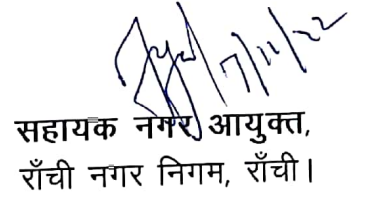 7/11/22
सहायक नगर आयुक्त,
राँची नगर निगम, राँची।